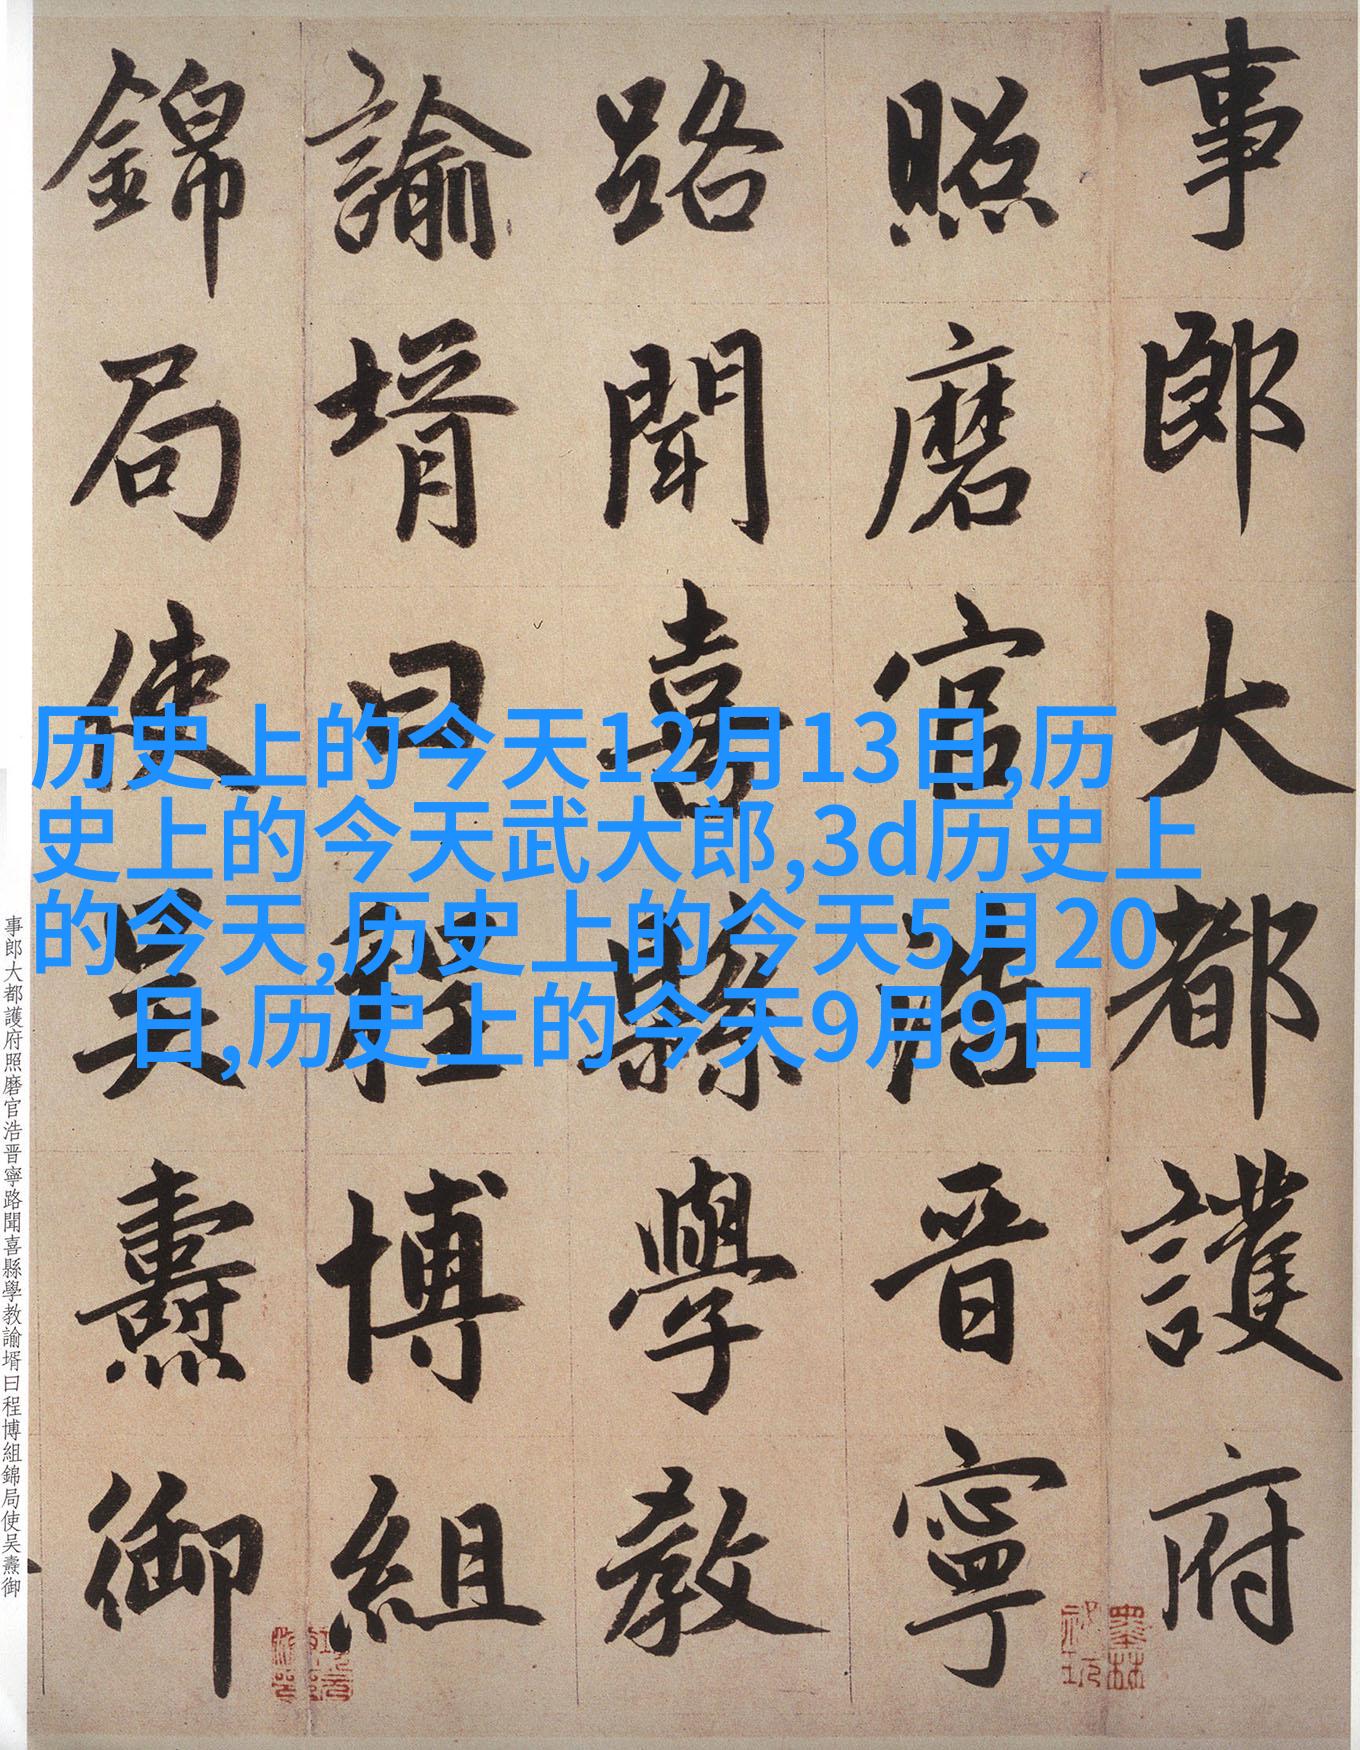 事郎大都護府
照磨官浩晋寧
路聞喜縣學教
諭壻曰程博組
錦局使吴燾御
历史上的今天12月13日,历
史上的今天武大郎,3d历史上
的今天,历史上的今天5月20
日,历史上的今天9月9日
事郎大都護府照磨官浩晋寧路聞喜縣學教諭壻曰程博組錦局使吴燾御